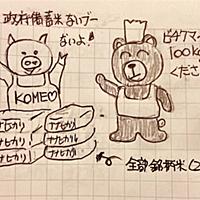 政府備蓄米ないブー
ないよ！
KOME♡
ナナヒカリ
ナナヒカリ
ナナヒカリ
ナナヒカリ
ナナヒカリ
ナナヒカリ
ビチクマー
100kg
くださ
全部銘柄米